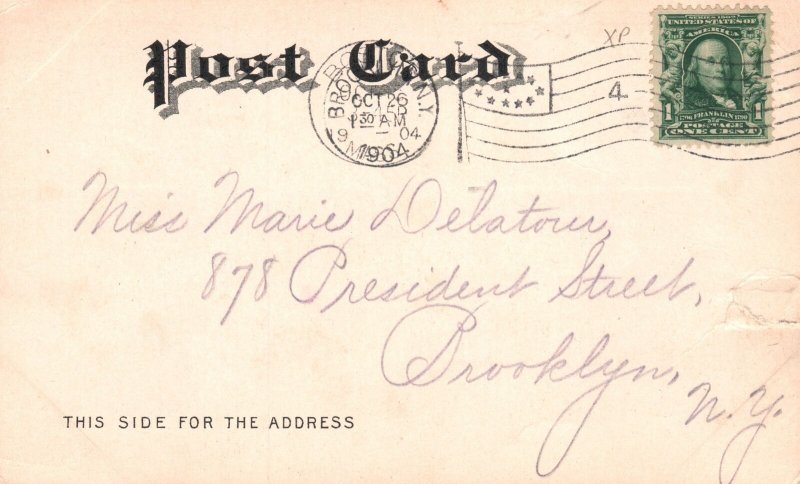 Post Card
XP
BROOKLYN, N.Y.
OCT 26
1 30 AM
19 04
MASS.
1904
4
SERIES 1902
UNITED STATES OF
AMERICA
1 1706 FRANKLIN 1790 1
POSTAGE
ONE CENT
Miss Marie Delatour,
878 President Street,
Brooklyn,
N.Y.
THIS SIDE FOR THE ADDRESS